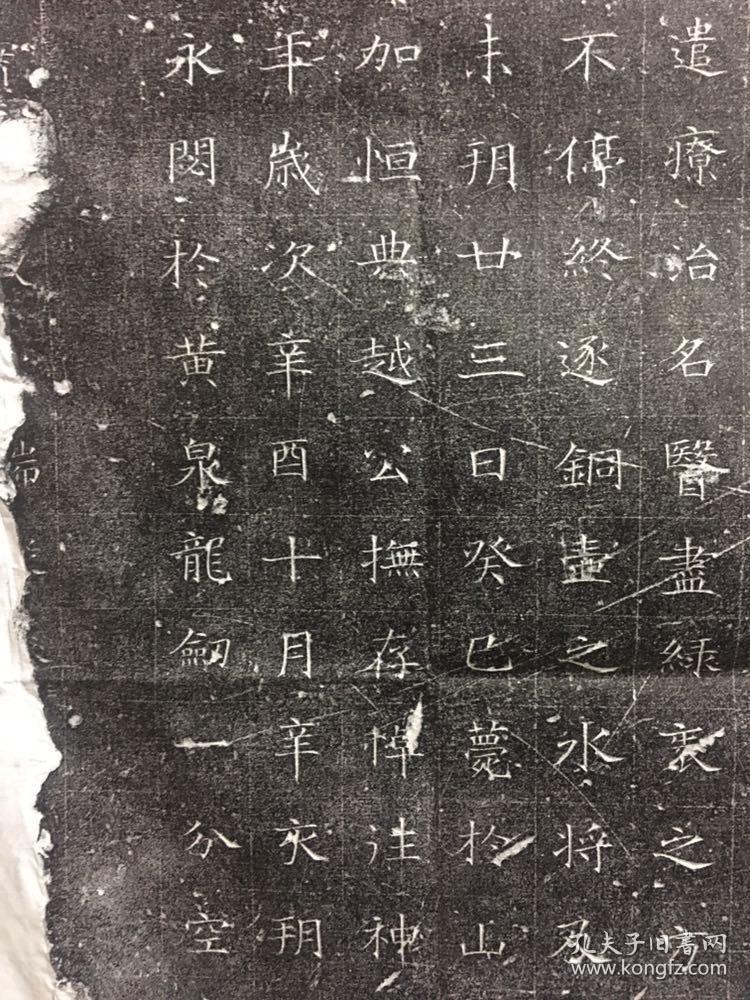 遣療治名醫盡綠衷之方
不停終逐銅壷之水将及
未朔廿三日癸巳薨於山
加恒典越公撫存悼往神
年歳次辛酉十月辛亥朔
永閟於黄泉龍劒一分空
孔夫子旧書网
www.kongfz.com